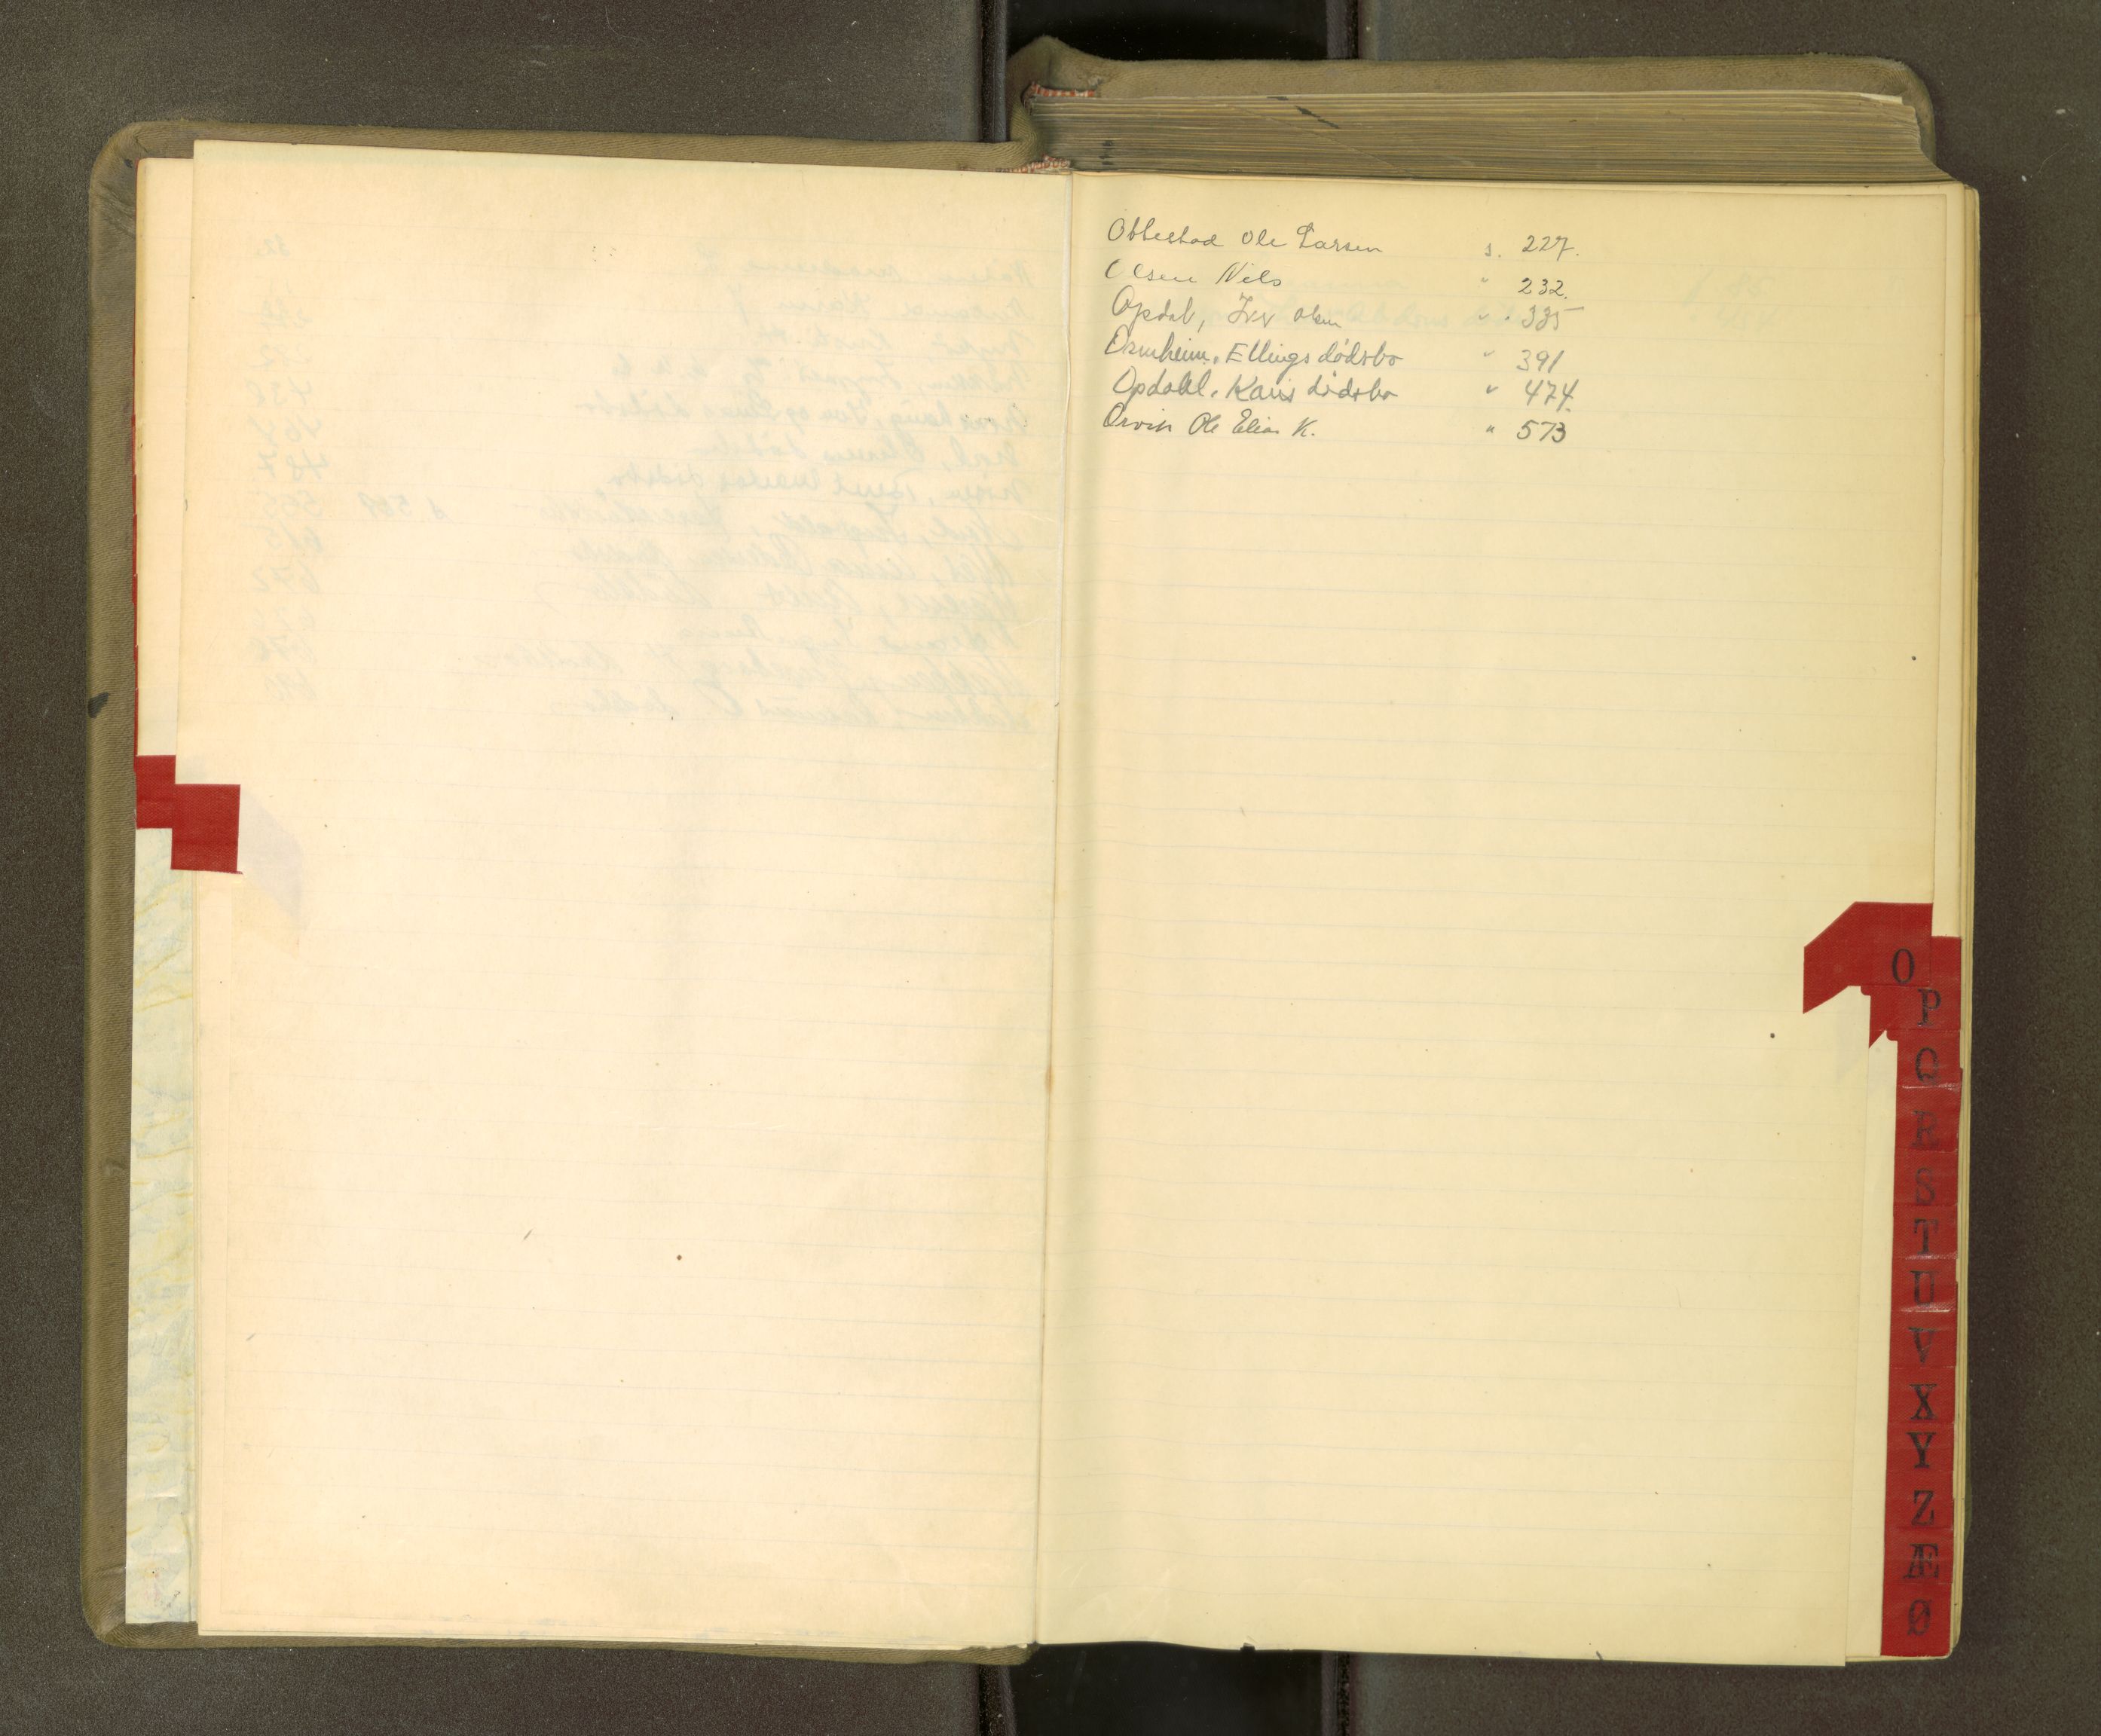 Obbestad Ole Larsen s. 227.
Olsen Nils " 232.
Opdal, Iver Olsen " 335
Ormheim, Ellings dødsbo " 391
Opdahl, Karis dødsbo " 474.
Orvik Ole Elias K. " 573
O
P
Q
R
S
T
U
V
X
Y
Z
Æ
Ø